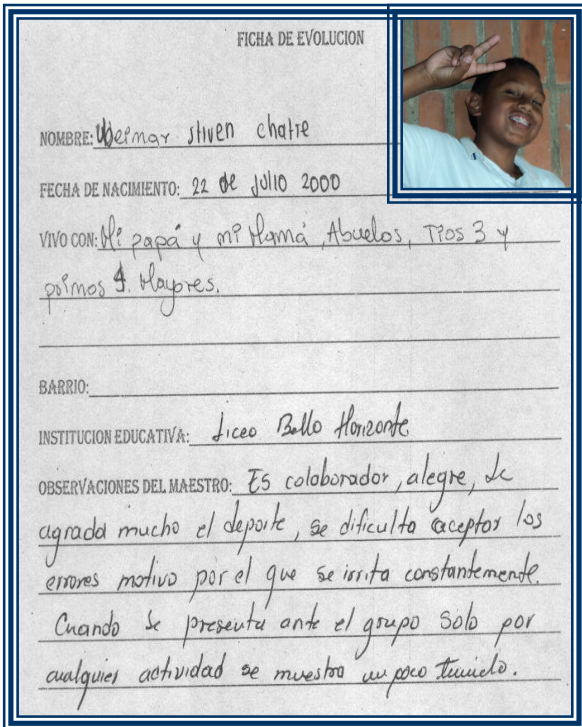 FICHA DE EVOLUCION
NOMBRE: Weimar Stiven chatre
FECHA DE NACIMIENTO: 22 de Julio 2000
VIVO CON: Mi papá y mi Mamá, Abuelos, Tios 3 y
primos 4. Mayores.
BARRIO:
INSTITUCION EDUCATIVA: Liceo Bello Horizonte
OBSERVACIONES DEL MAESTRO: Es colaborador, alegre, Le
agrada mucho el deporte, se dificulta aceptar los
errores motivo por el que se irrita constantemente.
Cuando se presenta ante el grupo solo por
cualquier actividad se muestra un poco timido.